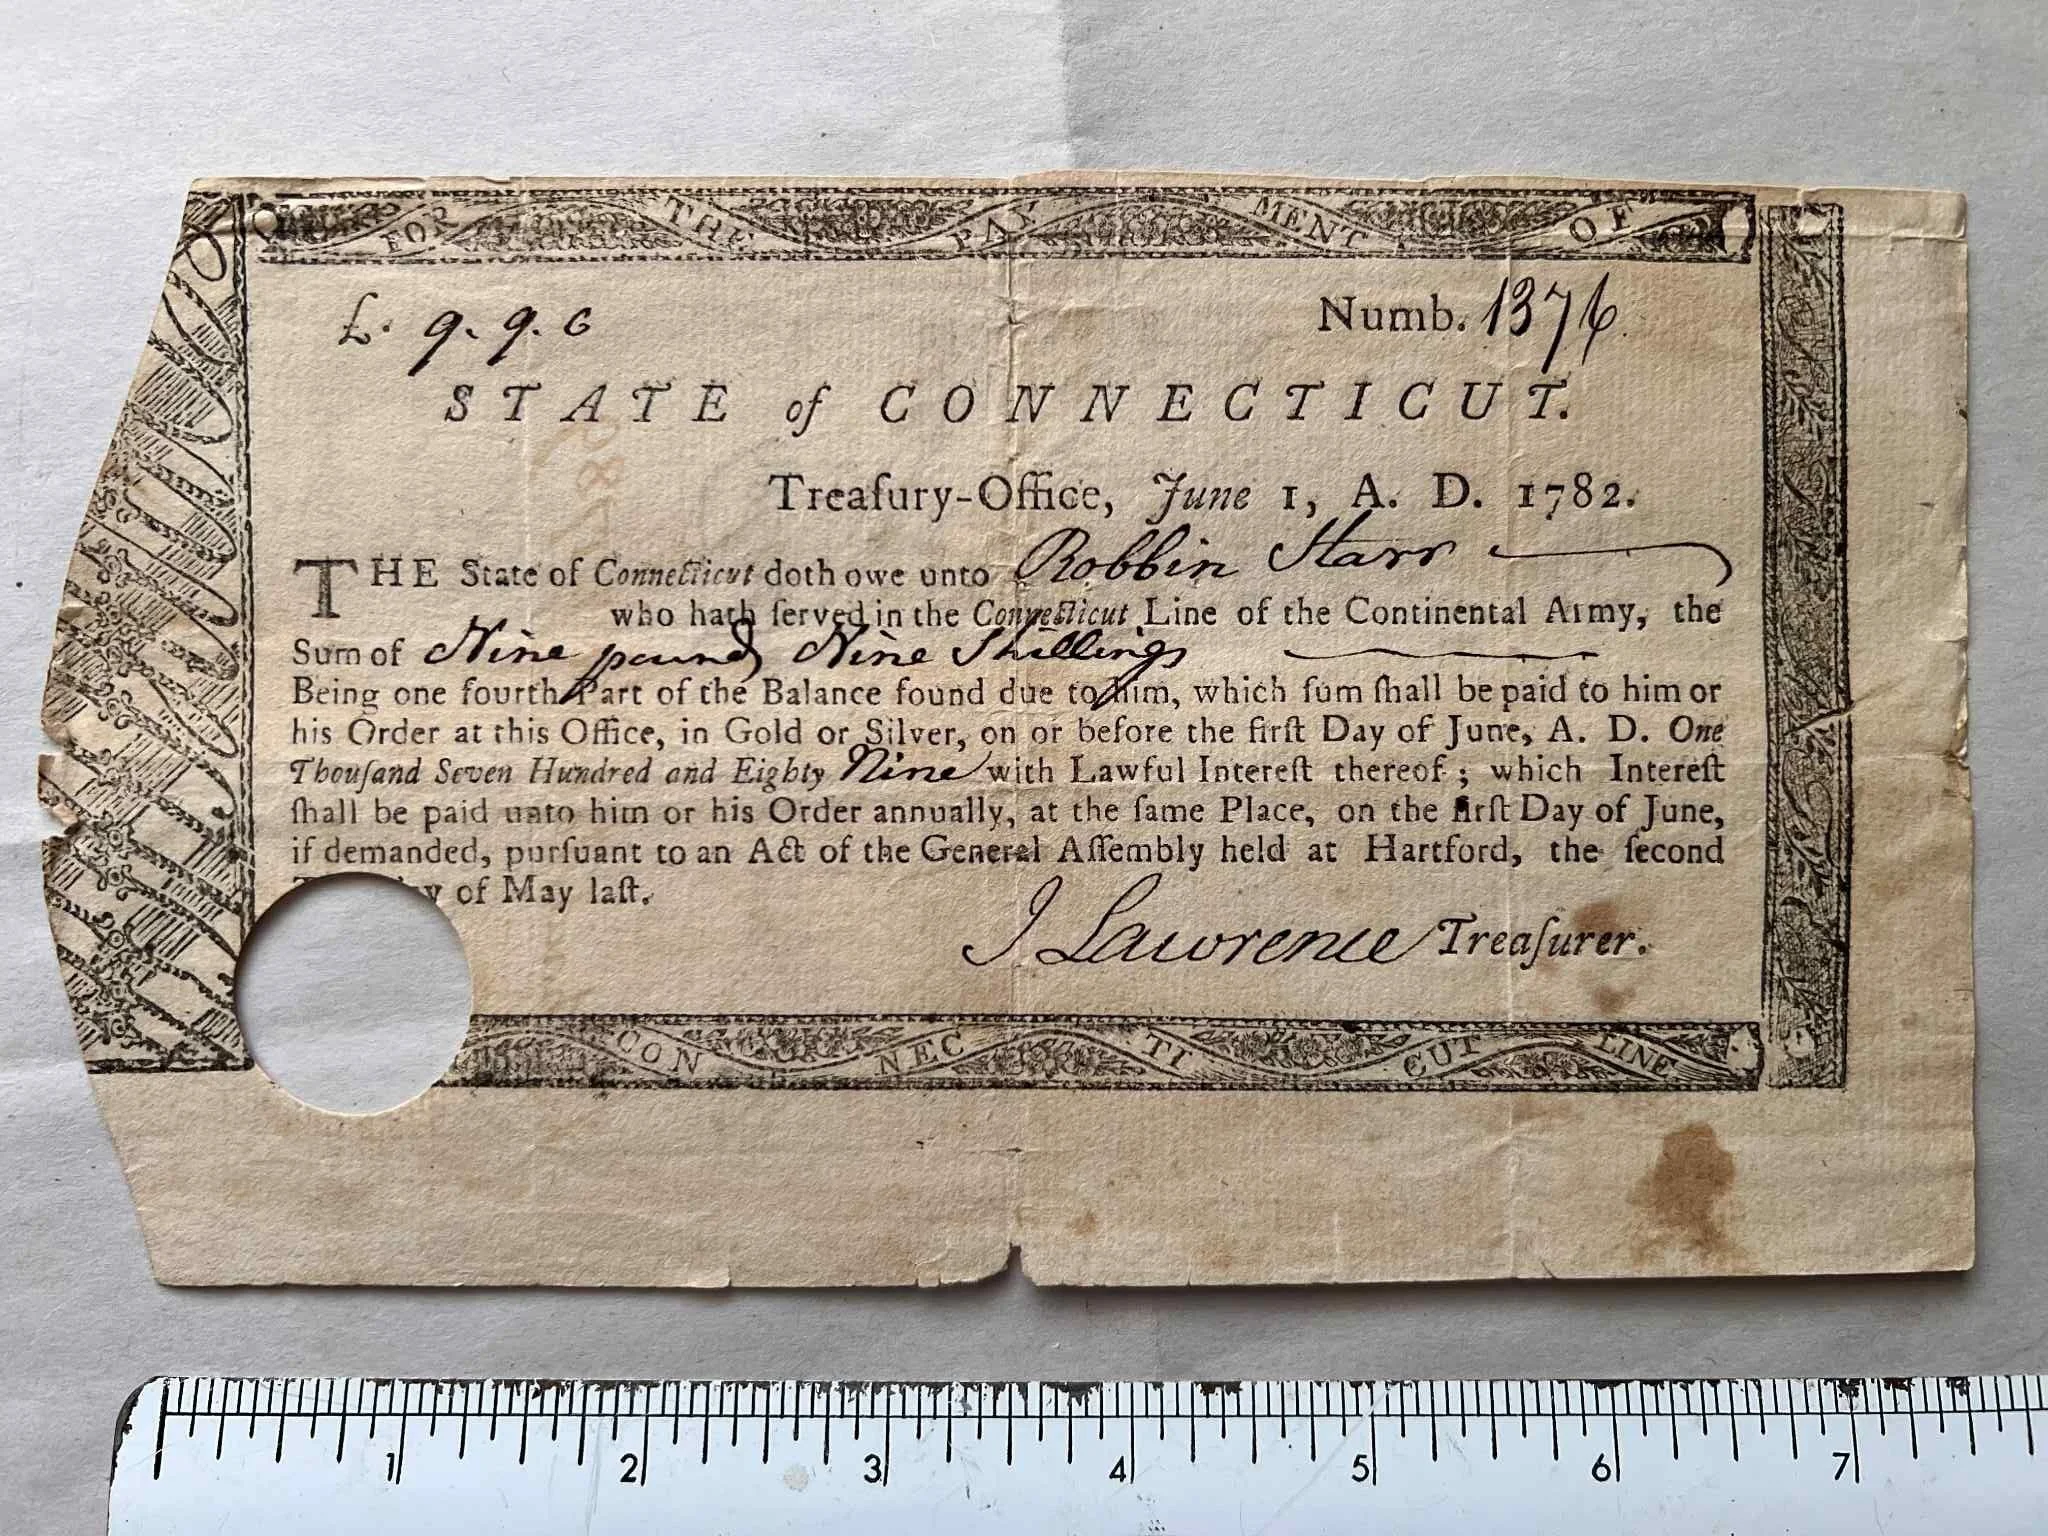 FOR THE PAY MENT OF
£. 9. 9. 0 Numb. 1376
STATE of CONNECTICUT.
Treaſury-Office, June 1, A. D. 1782.
THE State of Connecticut doth owe unto Robbin Starr
who hath ſerved in the Connecticut Line of the Continental Army, the
Sum of Nine pounds Nine Shillings
Being one fourth Part of the Balance found due to him, which ſum ſhall be paid to him or
his Order at this Office, in Gold or Silver, on or before the firſt Day of June, A. D. One
Thouſand Seven Hundred and Eighty Nine with Lawful Intereſt thereof; which Intereſt
ſhall be paid unto him or his Order annually, at the ſame Place, on the firſt Day of June,
if demanded, purſuant to an Act of the General Aſſembly held at Hartford, the ſecond
of May laſt.
J Lawrence Treaſurer.
CON NEC TI CUT LINE
1 2 3 4 5 6 7